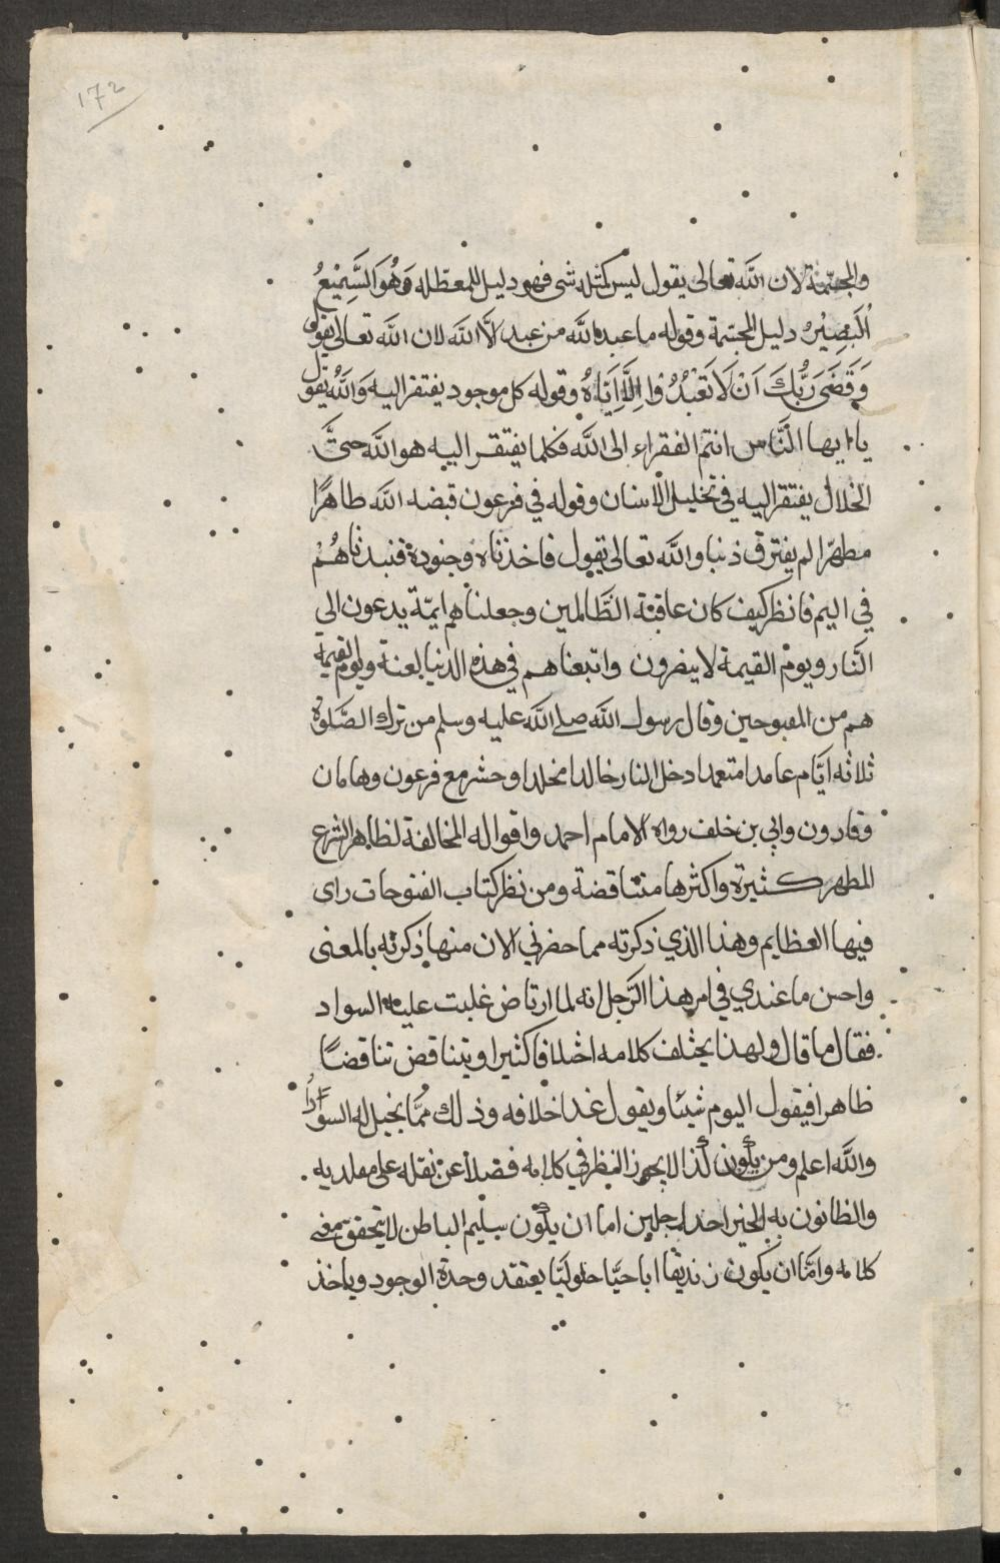 172
والمجسمة لان الله تعالى يقول ليس كمثله شى فهو دليل للمعطله وَهُوَ السَّمِيْعُ
اُلْبَصِيْرُ دليل للمجسمة وقوله ما عبد الله من عبد الَّا الله لان الله تعالى يقول
وَقَضَى رَبُّكَ اَنْ لَا تَعْبُدُوْا اِلَّا اِيَّاهُ وقوله كل موجود يفتقر اليه وَاللهُ يقول
ياءايها النَّاس انتم الفقراء الى الله فكلما يفتقر اليه هو الله حتىَّ
الخلال يفتقر اليه في تخليل الاسنان وقوله في فرعون قبضه الله طاهرًا
مطهرا لم يقترف ذنبا والله تعالى يقول فاخذناه وجنوده فنبدناهُمْ
في اليم فانظر كيف كان عاقبة الظَّالمين وجعلناهم ايمّة يدعون الى
النَّار ويوم القيمة لا ينصرون واتبعناهم في هذه الدنيا لعنة ويوم القيمة
هم من المقبوحين وقال رسول الله صلى الله عليه وسلم من ترك الصَّلوة
ثلاثه ايَّام عامدا متعمدا دخل النار خالدا مخلدا وحشر مع فرعون وهامان
وقارون وابي بن خلف رواه الامام احمد واقواله المخالفة لظاهر الشرع
المطهر كثيرة واكثرها متناقضة ومن نظر كتاب الفتوحات راى
فيها العظايم وهذا الذي ذكرته مما حضرني الان منها ذكرته بالمعنى
واحسن ما عندي في امر هذا الرَّجل انه لما ارتاض غلبت عليه السواد
فقال ما قال ولهذا يختلف كلامه اختلافا كثيرا ويتناقض تناقضًا
ظاهرا فيقول اليوم شيئا ويقول غدا خلافه وذلك ممَّا يخيل له السوَّدا
والله اعلم ومن يكون كذا لا يجوز النظر في كلامه فضلا عن نقله على مقلديه .
والظانون به الخير احد رجلين اما ان يكون سليم الباطن لا يتحقق معنى
كلامه وامَّا ان يكون زنديقا اباحيًّا حلوليًّا يعتقد وحدة الوجود وياخذ